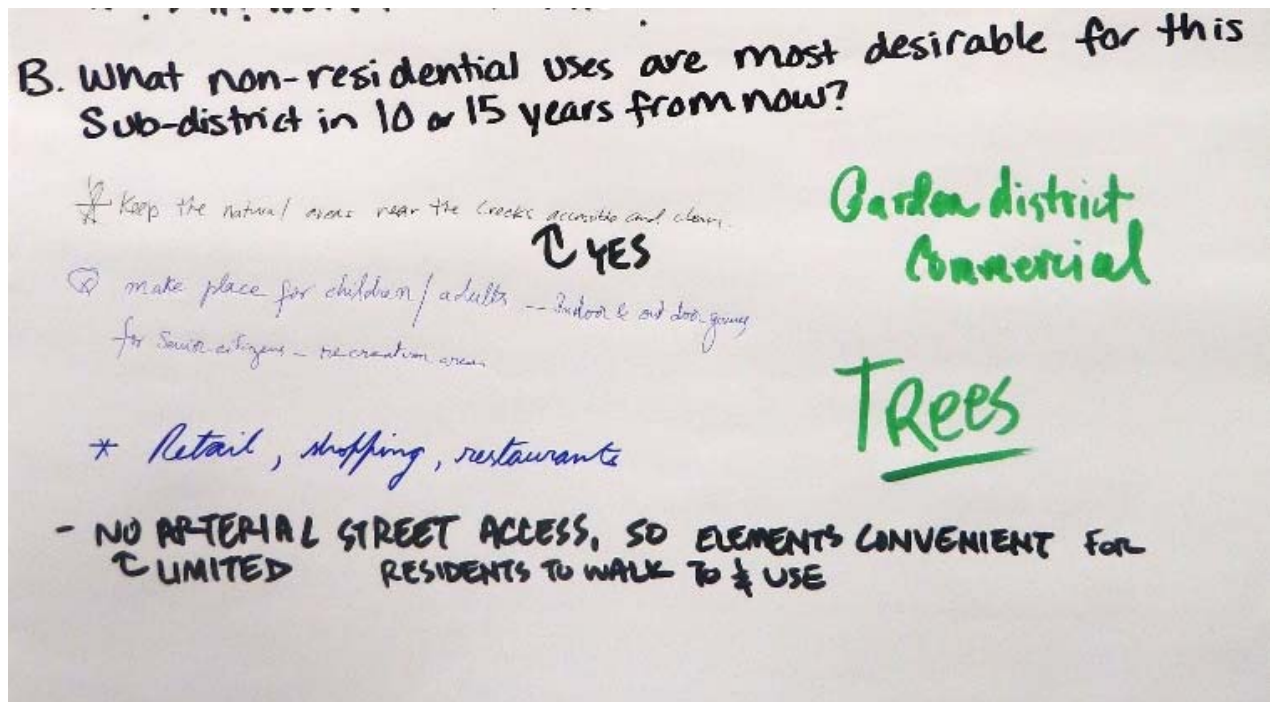 B. What non-residential uses are most desirable for this
Sub-district in 10 or 15 years from now?
* Keep the natural areas near the Creeks accessible and clean.
↑ YES
make place for children / adults -- Indoor & out door games
for Senior citizens - recreation areas
* Retail, shopping, restaurants
- NO ARTERIAL STREET ACCESS, SO ELEMENTS CONVENIENT FOR
↑ LIMITED RESIDENTS TO WALK TO & USE
Garden district
Commercial
TRees